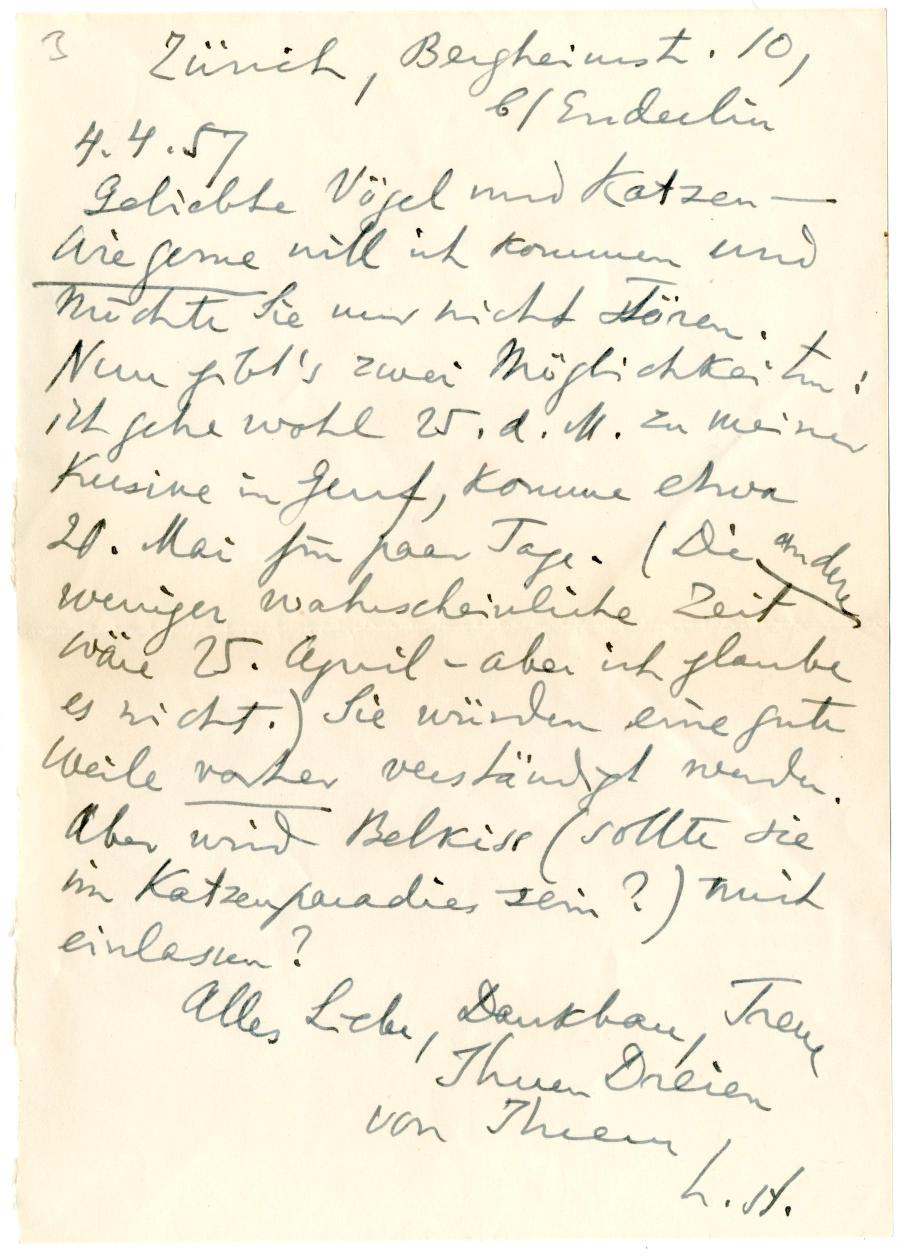 3
Zürich, Bergheimstr. 10,
b/ Enderlin
4.4.57
Geliebte Vögel und Katzen —
Wie gerne will ich kommen und
möchte Sie nur nicht stören.
Nun gibt's zwei Möglichkeiten:
ich gehe wohl 25. d. M. zu meiner
Kusine in Genf, komme etwa
20. Mai für paar Tage. (Die andere
weniger wahrscheinliche Zeit
wäre 25. April – aber ich glaube
es nicht.) Sie würden eine gute
Weile vorher verständigt werden.
Aber wird Belkiss (sollte sie
im Katzenparadies sein?) mich
einlassen?
Alles Liebe, Dankbare, Treue
Ihnen Dreien
von Ihrem,
L. St.